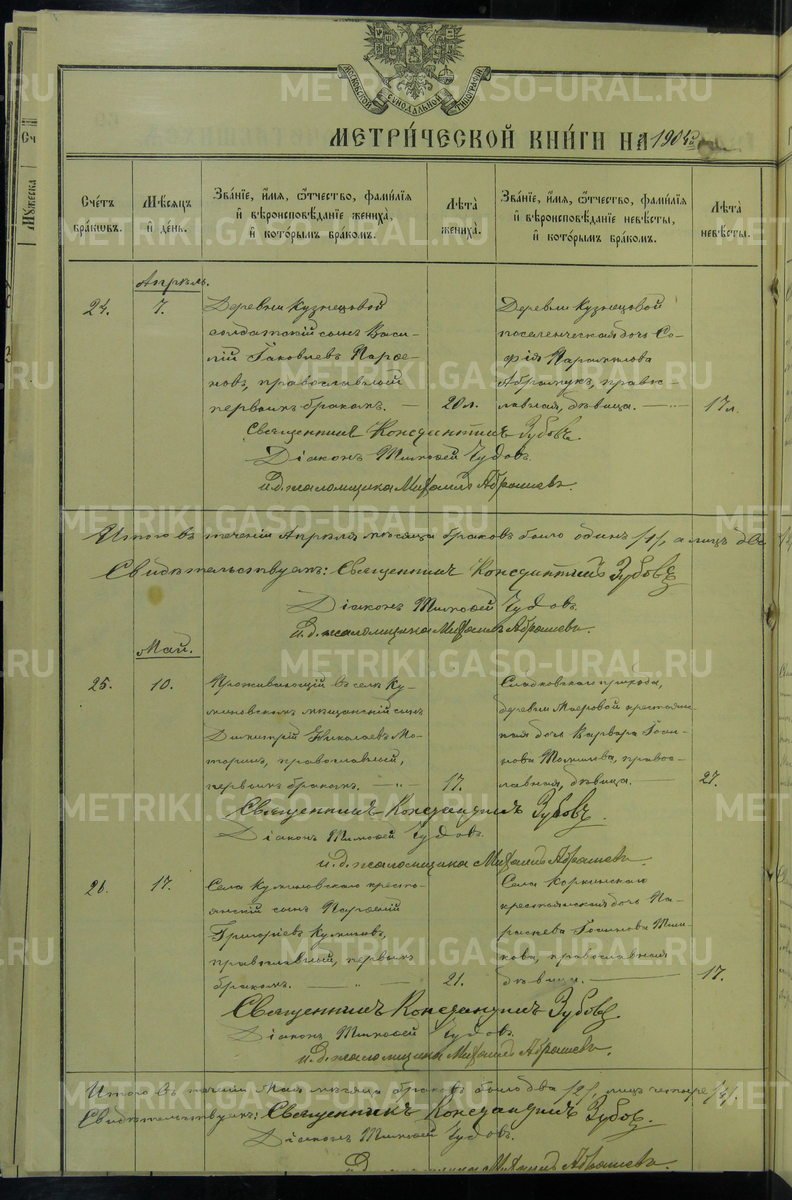 МОСКОВСКОЙ СѴНОДАЛЬНОЙ ТИПОГРАФІИ
МЕТРИ́ЧЕСКОЙ КНИ́ГИ НА 1904й
Сче́тъ бра́кωвъ.
Мѣ́сяцъ и҆ де́нь.
Зва́нїе, и҆́мя, ѻ҆́тчество, фами́лїя и҆ вѣроисповѣ́данїе жениха̀, и҆ кото́рымъ бра́комъ.
Лѣ́та жениха̀.
Зва́нїе, и҆́мя, ѻ҆́тчество, фами́лїя и҆ вѣроисповѣ́данїе невѣ́сты, и҆ кото́рымъ бра́комъ.
Лѣ́та невѣ́сты.
Апрѣль.
24.
7.
Деревни Кузнецовой
солдатскій сынъ Васи-
лій Іаковлевъ Парѳе-
новъ, православный
первымъ бракомъ.
20 л.
Деревни Кузнецовой
поселенческая дочь Со-
фія
Абрамукъ, правос-
лавная, дѣвица.
17 л.
Священникъ Константинъ Зубовъ.
Діаконъ Тимоѳей Чудовъ.
и. д. псаломщика Михаилъ Абрашевъ.
Итого въ теченіи Апрѣля мѣсяца браковъ было одинъ /1/, а лицъ два
Свидѣтельствуемъ: Священникъ Константинъ Зубовъ
Діаконъ Тимоѳей Чудовъ.
и. д. псаломщика Михаилъ Абрашевъ.
Май.
25.
10.
Проживающій въ селѣ Ку-
миновскомъ мѣщанскій сынъ
Димитрій Николаевъ Мо-
торинъ, православный,
первымъ бракомъ.
17.
Сладковскаго прихода,
деревни Маеровой крестьян-
ская дочь Варвара Іоси-
фова правос-
лавная, дѣвица.
27.
Священникъ Константинъ Зубовъ.
Діаконъ Тимоѳей Чудовъ.
и. д. псаломщика Михаилъ Абрашевъ.
26.
17.
Села Куминовскаго кресть-
янскій сынъ Парѳеній
Григоріевъ Куминовъ,
православный, первымъ
бракомъ.
21.
Села Коркинскаго
крестьянская дочь Па-
раскева
православная
дѣвица.
17.
Священникъ Константинъ Зубовъ.
Діаконъ Тимоѳей Чудовъ.
и. д. псаломщика Михаилъ Абрашевъ.
Итого въ теченіи Мая мѣсяца браковъ было два /2/, лицъ четыре /4/.
Свидѣтельствуемъ: Священникъ Константинъ Зубовъ.
Діаконъ Тимоѳей Чудовъ.
и. д. псаломщика Михаилъ Абрашевъ.
METRIKI.GASO-URAL.RU